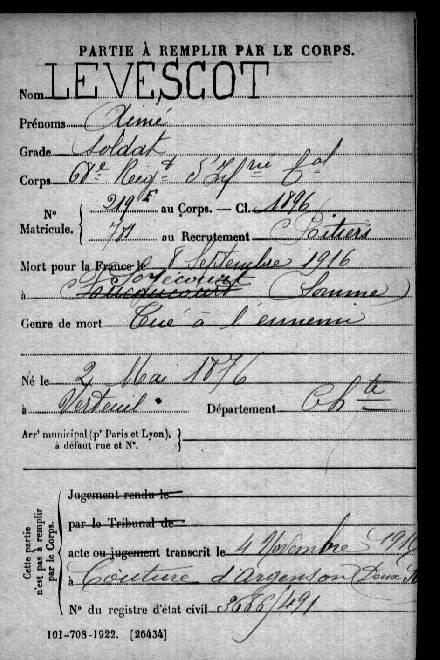 PARTIE À REMPLIR PAR LE CORPS.
Nom LEVESCOT
Prénoms Aimé
Grade Soldat
Corps 68e Regt d'Infrie Cal
Nos Matricule. { 219 au Corps. — Cl. 1896
au Recrutement Poitiers
Mort pour la France le 8 Septembre 1916
Soyécourt
à (Somme)
Genre de mort Tué à l'ennemi
Né le 2 Mai 1876
à Verteuil Département Chte
Arrt municipal (pr Paris et Lyon), à défaut rue et N°. }
Cette partie n'est pas à remplir par le Corps. {
Jugement rendu le
par le Tribunal de
acte ou jugement transcrit le 4 Novembre 1916
à Couture d'Argenson Deux
N° du registre d'état civil 3686/491
101-708-1922. [26434]